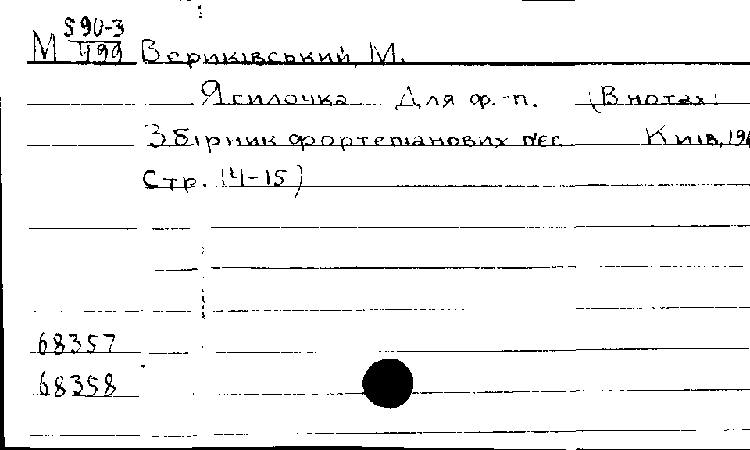 М 590-3/499 Вериківський, М.
Ясилочка. Для ф.-п. (В нотах:
Збірник фортепіанових п'єс. Київ, 19
Стр. 14-15)
68357
68358